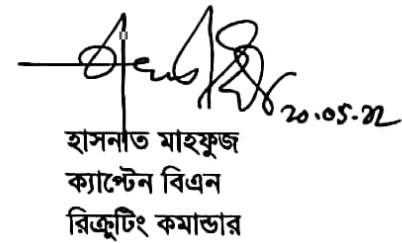 ২০.০৫.২২
হাসনাত মাহফুজ
ক্যাপ্টেন বিএন
রিক্রুটিং কমান্ডার